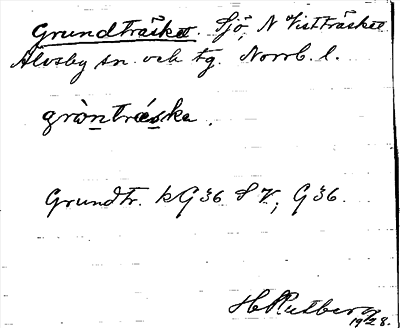 Grundträsket. Sjö, N Vistträsket
Älvsby sn. och tg. Norrb. l.
gròntréska.
Grundtr. kG36 SV; G36.
H Rutberg
1928.